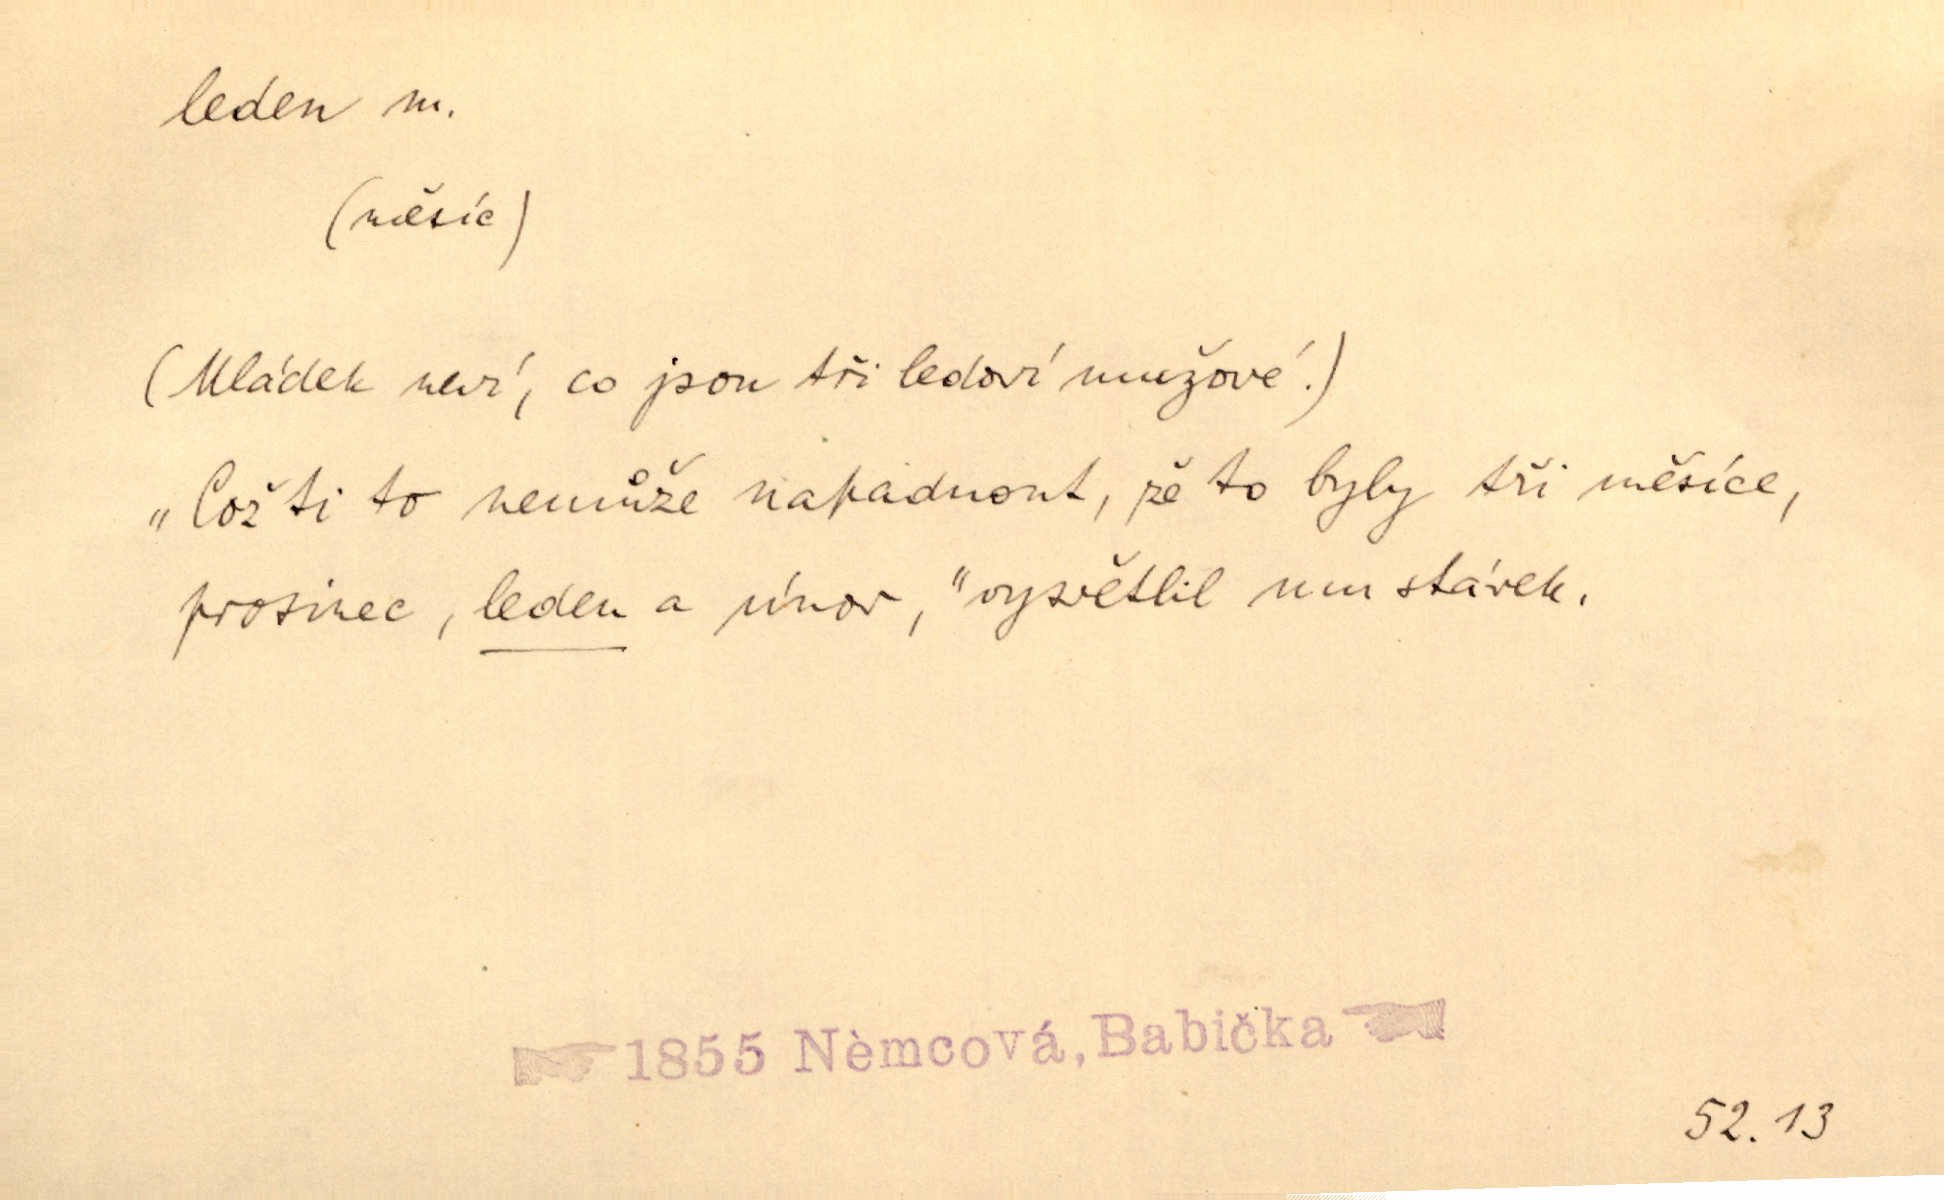 leden m.
(měsíc)
(Mládek neví, co jsou tři ledoví mužové.)
„Což ti to nemůže napadnout, že to byly tři měsíce,
prosinec, leden a únor,“ vysvětlil mu stárek.
1855 Nèmcová, Babička
52.13